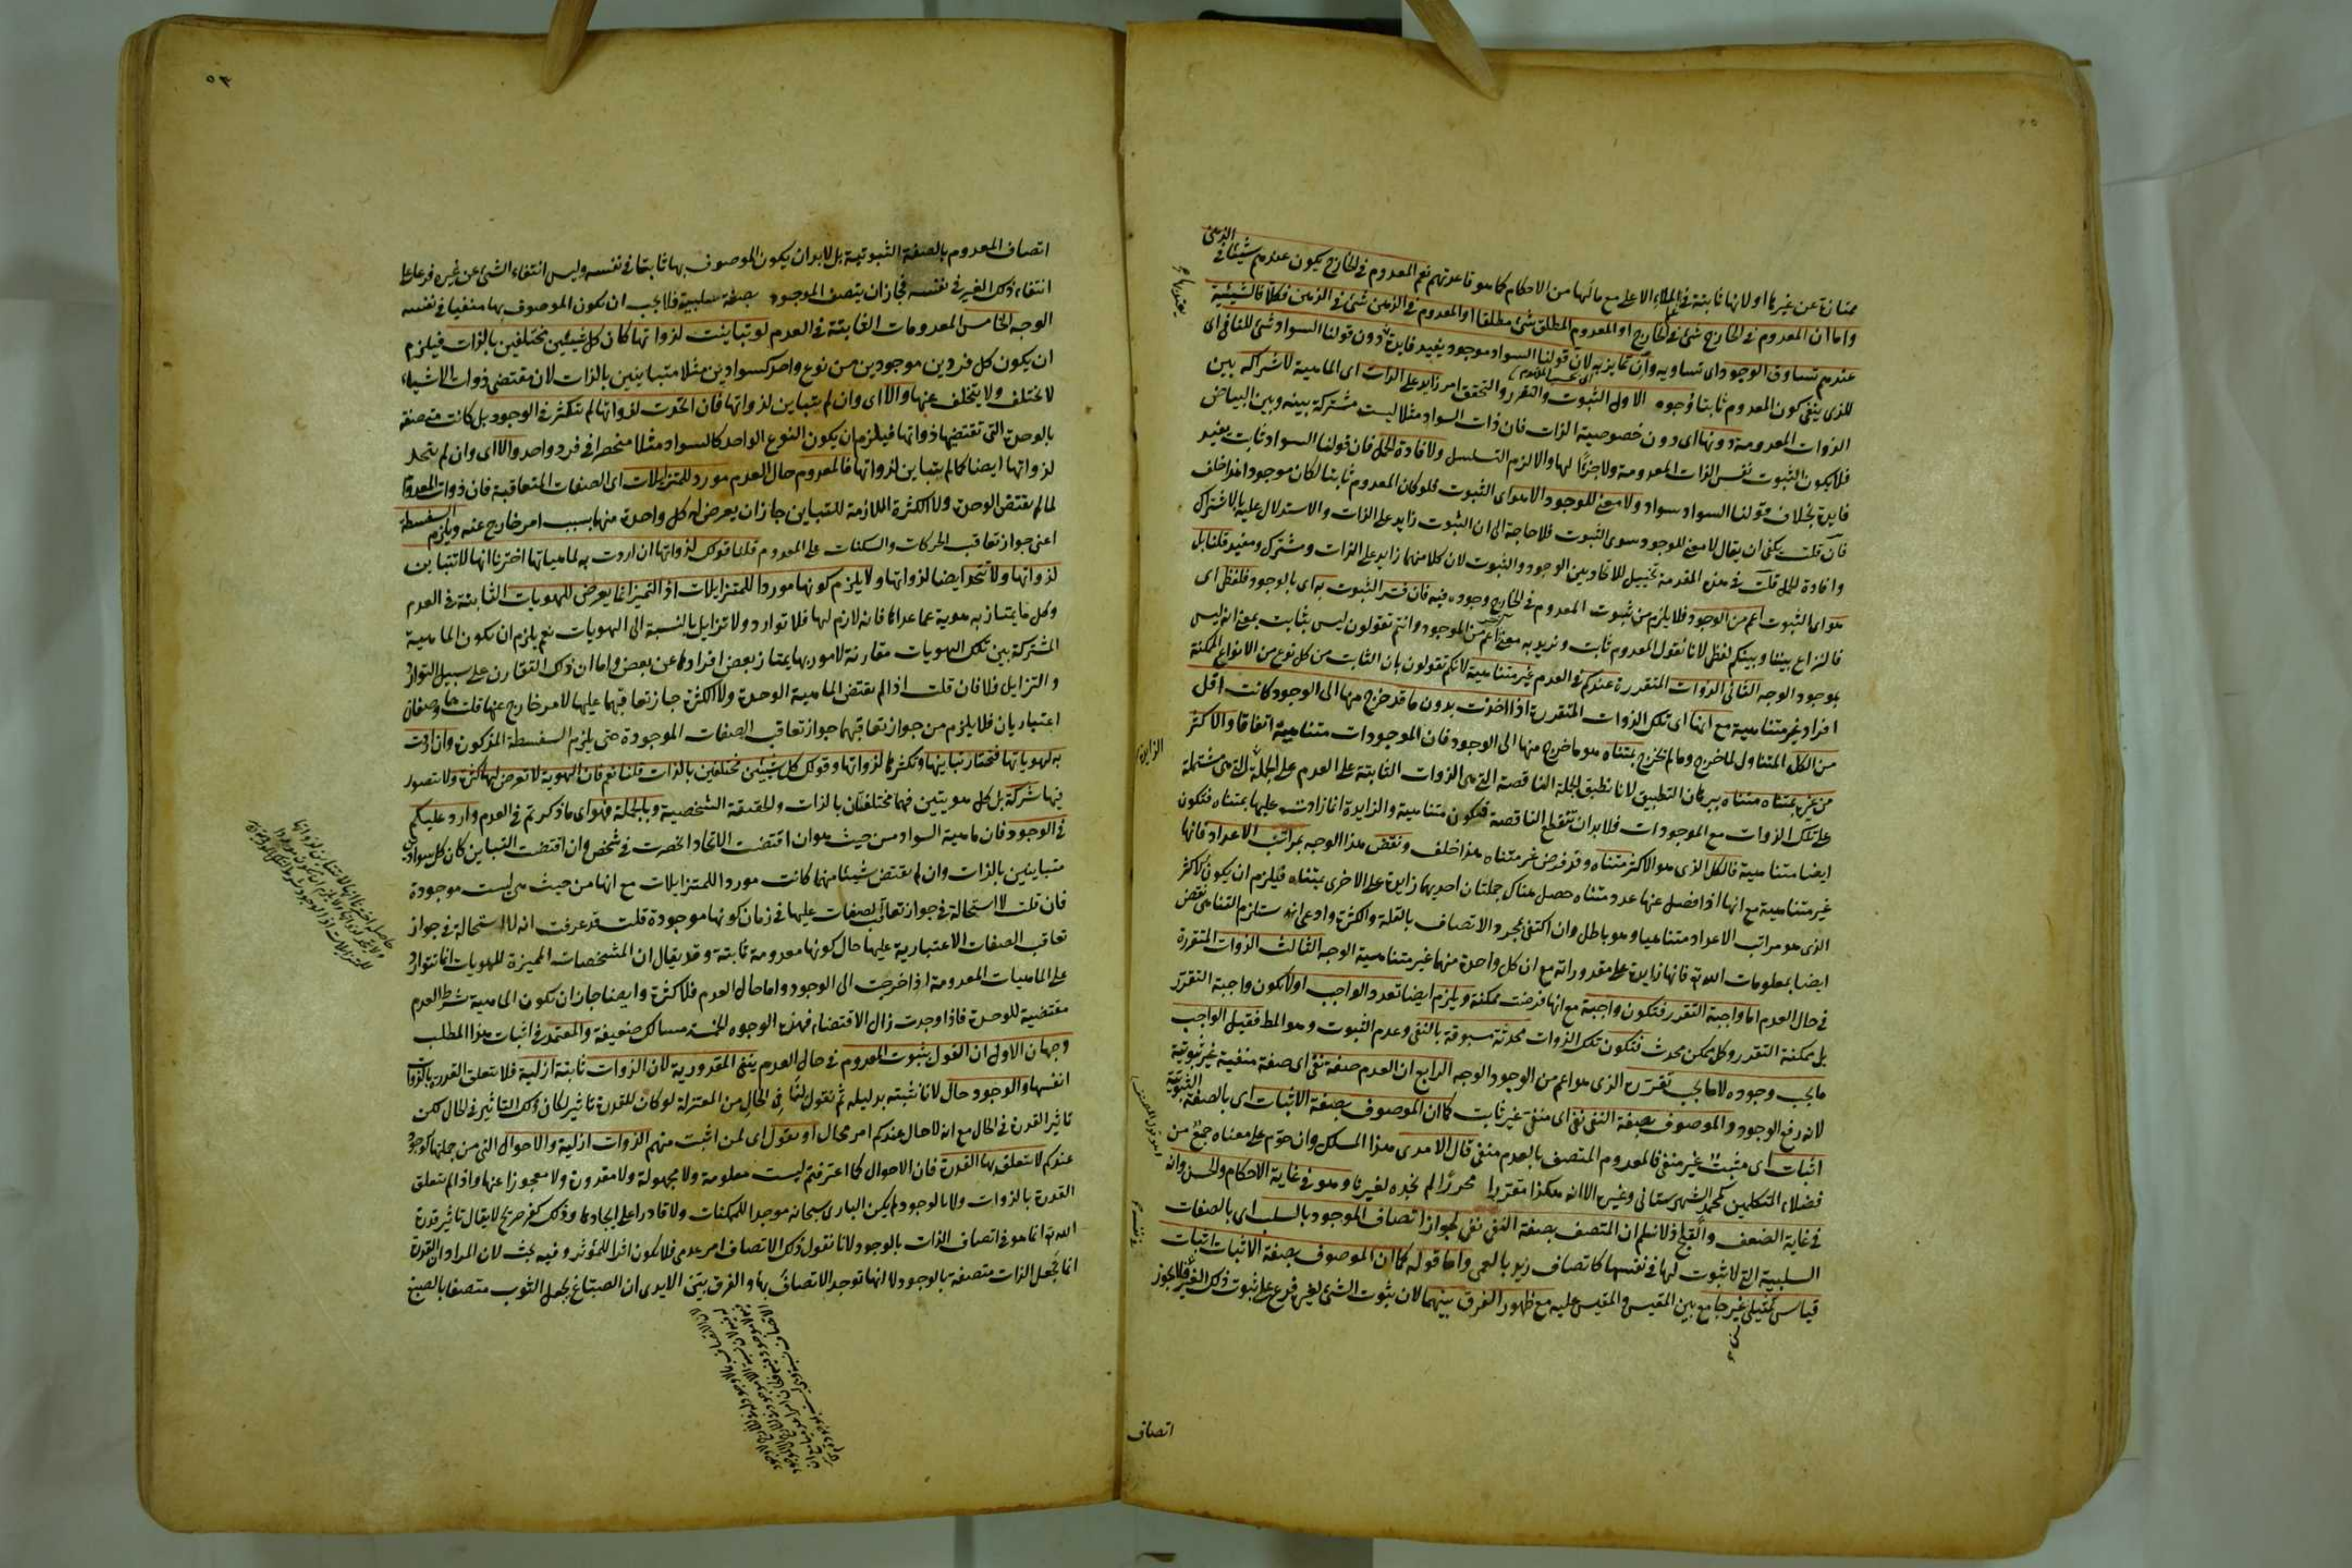 ممتازة عن غيرها او لانها ثابتة في الملاء الاعلى مع مالها من الاحكام كما هو قاعدتهم نعم المعدوم في الخارج يكون عندهم شيئا في الذهن
واما ان المعدوم في الخارج شئ في الخارج او المعدوم المطلق شئ مطلقا او المعدوم في الذهن شئ في الذهن فكلا فالشيئية
عندهم تساوق الوجود اى تساويه وان تمايز به لان قولنا السواد موجود يفيد فايدة دون قولنا السواد شئ للنافي اى
للذى ينفي كون المعدوم ثابتا وجوه الاول الثبوت والتقرر والتحقق امر زايد على الذات اى الماهية لاشتراكه بين
الذوات المعدومة دونها اى دون خصوصية الذات فان ذات السواد مثلا ليست مشتركة بينه وبين البياض
فلا يكون الثبوت نفس الذات المعدومة ولا جزءا لها والا لزم التسلسل ولافادة الحمل فان قولنا السواد ثابت يفيد
فايدة بخلاف قولنا السواد سواد ولا معنى للوجود الا هو اى الثبوت فلو كان المعدوم ثابتا لكان موجودا هذا خلف
فان قلت يكفى ان يقال لا معنى للوجود سوى الثبوت فلا حاجة الى ان الثبوت زايد على الذات والاستدلال عليه بالاشتراك
وافادة الحمل قلت في هذه المقدمة تخييل للاتحاد بين الوجود والثبوت لان كلا منهما زايد على الذات ومشترك ومفيد قلنا بل
هو اى الثبوت اعم من الوجود فلا يلزم من ثبوت المعدوم في الخارج وجوده فيه فان فسر الثبوت به اى بالوجود فلفظى اى
فالنزاع بيننا وبينكم لفظى لانا نقول المعدوم ثابت ونريد به معنى اعم من الموجود وانتم تقولون ليس بثابت بمعنى انه ليس
بموجود الوجه الثاني الذوات المتقررة عندكم في العدم غير متناهية لانكم تقولون بان الثابت من كل نوع من الانواع الممكنة
افراد غير متناهية مع انها اى تلك الذوات المتقررة اذا اخذت بدون ما قد خرج منها الى الوجود كانت اقل
من الكل المتناول لما خرج وما لم يخرج بمتناه هو ما خرج منها الى الوجود فان الموجودات متناهية اتفاقا والاكثر
من غيره بمتناه متناه ببرهان التطبيق لانا نطبق الجملة الناقصة التي هى الذوات الثابتة على العدم على الجملة التي هى مشتملة
على تلك الذوات مع الموجودات فلا بد ان تنقطع الناقصة فتكون متناهية والزايدة انما زادت عليها بمتناه فتكون
ايضا متناهية فالكل الذى هو الاكثر متناه وقد فرض غير متناه هذا خلف ونقض هذا الوجه بمراتب الاعداد فانها
غير متناهية مع انها اذا فصل عنها عدد متناه حصل هناك جملتان احديهما زايدة على الاخرى بمتناه فيلزم ان يكون الاكثر
الذى هو مراتب الاعداد متناهيا وهو باطل وان اكتفى بمجرد الاتصاف بالقلة والكثرة وادعى انه يستلزم التناهى نقض
ايضا بمعلومات الله تعالى فانها زايدة على مقدوراته مع ان كل واحدة منهما غير متناهية الوجه الثالث الذوات المتقررة
في حال العدم اما واجبة التقرر فتكون واجبة مع انها فرضت ممكنة ويلزم ايضا تعدد الواجب او لا يكون واجبة التقرر
بل ممكنة التقرر وكل ممكن محدث فتكون تلك الذوات محدثة مسبوقة بالنفي وعدم الثبوت وهو المط فقيل الواجب
ما يجب وجوده لا ما يجب تقرره الذى هو اعم من الوجود الوجه الرابع ان العدم صفة نفي اى صفة منفية غير ثبوتية
لانه رفع الوجود والموصوف بصفة النفي نفي اى منفي غير ثابت كما ان الموصوف بصفة الاثبات اى بالصفة الثبوتية
اثبات اى مثبت غير منفي فالمعدوم المتصف بالعدم منفي قال الامدى هذا المسلك وان حوم على معناه جمع من
فضلاء المتكلمين كمحمد الشهرستانى وغيره الا انه هكذا مقررا محررا لم نجده لغيرنا وهو في غاية الاحكام والحسن وانه
في غاية الضعف والقبح اذ لا نسلم ان المتصف بصفة النفي نفي لجواز اتصاف الموجود بالسلب اى بالصفات
السلبية التي لا ثبوت لها في نفسها كاتصاف زيد بالعمى واما قوله كما ان الموصوف بصفة الاثبات اثبات
قياس تمثيلى غير جامع بين المقيس والمقيس عليه مع ظهور الفرق بينهما لان ثبوت الشئ لغيره فرع على ثبوت ذلك الغير فلا يجوز
اتصاف
اتصاف المعدوم بالصفة الثبوتية بل لا بد ان يكون الموصوف بها ثابتا في نفسه وليس انتفاء الشئ عن غيره فرعا على
انتفاء ذلك الغير في نفسه فجاز ان يتصف الموجود بصفة سلبية فلا يجب ان يكون الموصوف بها منفيا في نفسه
الوجه الخامس المعدومات الثابتة في العدم لو تباينت لذواتها كان كل شيئين مختلفين بالذات فيلزم
ان يكون كل فردين موجودين من نوع واحد كسوادين مثلا متباينين بالذات لان مقتضى ذوات الاشياء
لا يختلف ولا يتخلف عنها والا اى وان لم يتباين لذواتها فان اتحدت لذواتها لم تتكثر في الوجود بل كانت متصفة
بالوحدة التي تقتضيها ذواتها فيلزم ان يكون النوع الواحد كالسواد مثلا منحصرا في فرد واحد والا اى وان لم يتحد
لذواتها ايضا كما لم يتباين لذواتها فالمعدوم حال العدم مورد للمتزايلات اى الصفات المتعاقبة فان ذوات المعدومات
لما لم يقتض الوحدة ولا الكثرة اللازمة للتباين جاز ان يعرض له كل واحدة منهما بسبب امر خارج عنه ويلزم السفسطة
اعنى جواز تعاقب الحركات والسكنات على المعدوم قلنا قولك لذواتها ان اردت به لماهياتها اخترنا انها لا تتباين
لذواتها ولا تتحد ايضا لذواتها ولا يلزم كونها موردا للمتزايلات اذ التميز انما يعرض للهويات الثابتة في العدم
وكل ما يمتاز به هوية عما عداها فانه لازم لها فلا توارد ولا تزايل بالنسبة الى الهويات نعم يلزم ان يكون الماهية
المشتركة بين تلك الهويات مقارنة لامور بها يمتاز بعض افرادها عن بعض واما ان ذلك التقارن على سبيل التوارد
والتزايل فلا فان قلت اذا لم يقتض الماهية الوحدة ولا الكثرة جاز تعاقبهما عليها لامر خارج عنها قلت هما وصفان
اعتباريان فلا يلزم من جواز تعاقبهما جواز تعاقب الصفات الموجودة حتى يلزم السفسطة المذكورة وان اردت
به لهوياتها فنختار تباينها وتكثرها لذواتها وقولك كل شيئين مختلفين بالذات قلنا نعم فان الهوية لا تعرض لها كثرة ولا يتصور
فيها شركة بل كل هويتين فهما مختلفتان بالذات والحقيقة الشخصية وبالجملة فهو اى ما ذكرتم في العدم وارد عليكم
في الوجود فان ماهية السواد من حيث هو ان اقتضت الاتحاد انحصرت في شخص وان اقتضت التباين كان كل سوادين
متباينين بالذات وان لم يقتض شيئا منهما كانت موردا للمتزايلات مع انها من حيث هى ليست موجودة
فان قلت لا استحالة في جواز تعاقب الصفات عليها في زمان كونها موجودة قلت قد عرفت انه لا استحالة في جواز
تعاقب الصفات الاعتبارية عليها حال كونها معدومة ثابتة وقد يقال ان المشخصات المميزة للهويات انما تتوارد
على الماهيات المعدومة اذا خرجت الى الوجود واما حال العدم فلا كثرة وايضا جاز ان يكون الماهية بشرط العدم
مقتضية للوحدة فاذا وجدت زال الاقتضاء فهذه الوجوه الخمسة مسالك ضعيفة والمعتمد في اثبات هذا المطلب
وجهان الاول ان القول بثبوت المعدوم في حال العدم ينفي المقدورية لان الذوات ثابتة ازلية فلا يتعلق القدرة بالذوات
انفسها والوجود حال لانا نثبته بدليله ثم نقول لنافي الحال من المعتزلة لو كان للقدرة تاثير لكان ذلك التاثير في الحال لكن
تاثير القدرة في الحال مع انه لا حال عندكم امر محال او نقول اى لمن اثبت منهم الذوات ازلية والاحوال التي من جملتها الوجود
عندكم لا تتعلق بها القدرة فان الاحوال كما اعترفتم ليست معلومة ولا مجهولة ولا مقدورة ولا معجوزا عنها واذا لم يتعلق
القدرة بالذوات ولا بالوجود لم يكن البارى سبحانه موجدا للممكنات ولا قادرا على ايجادها وذلك كفر صريح لا يقال تاثير قدرة
الله تعالى انما هو في اتصاف الذات بالوجود لانا نقول ذلك الاتصاف امر عدمى فلا يكون اثرا للمؤثر وفيه بحث لان المراد ان القدرة
انما تجعل الذات متصفة بالوجود لا انها توجد الاتصاف بها والفرق بين الا يرى ان الصباغ يجعل الثوب متصفا بالصبغ